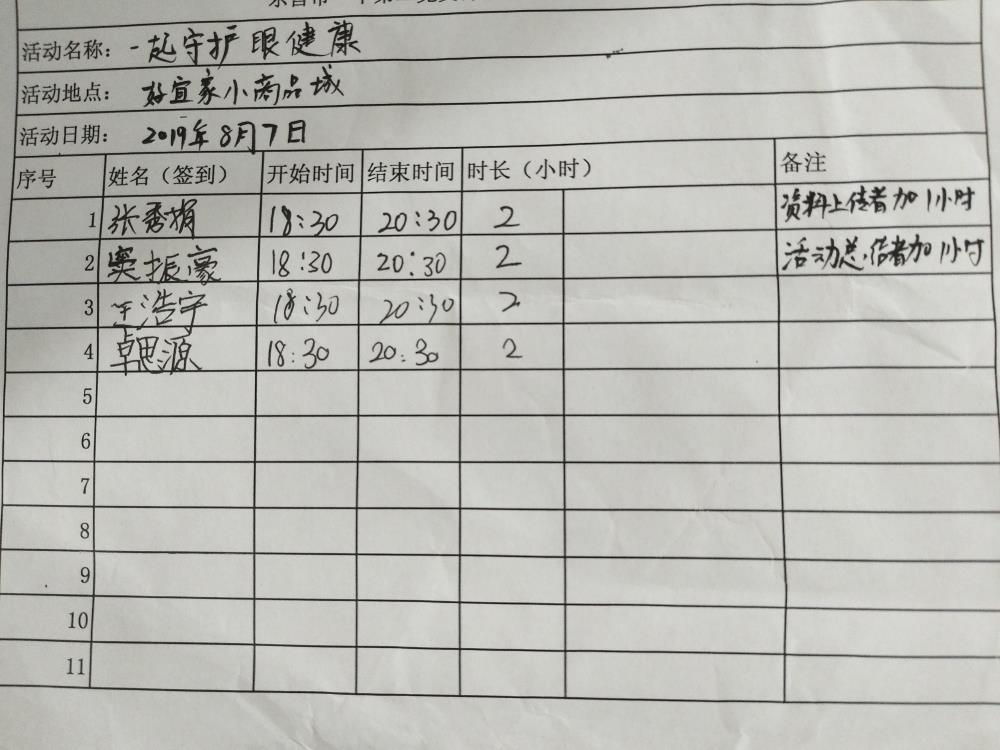 活动名称：一起守护眼健康
活动地点：好宜家小商品城
活动日期：2019年8月7日
序号 姓名（签到） 开始时间 结束时间 时长（小时） 备注
1 张秀娟 18:30 20:30 2 资料上传者加1小时
2 窦振豪 18:30 20:30 2 活动总结者加1小时
3 王浩宇 18:30 20:30 2
4 卓思源 18:30 20:30 2
5
6
7
8
9
10
11